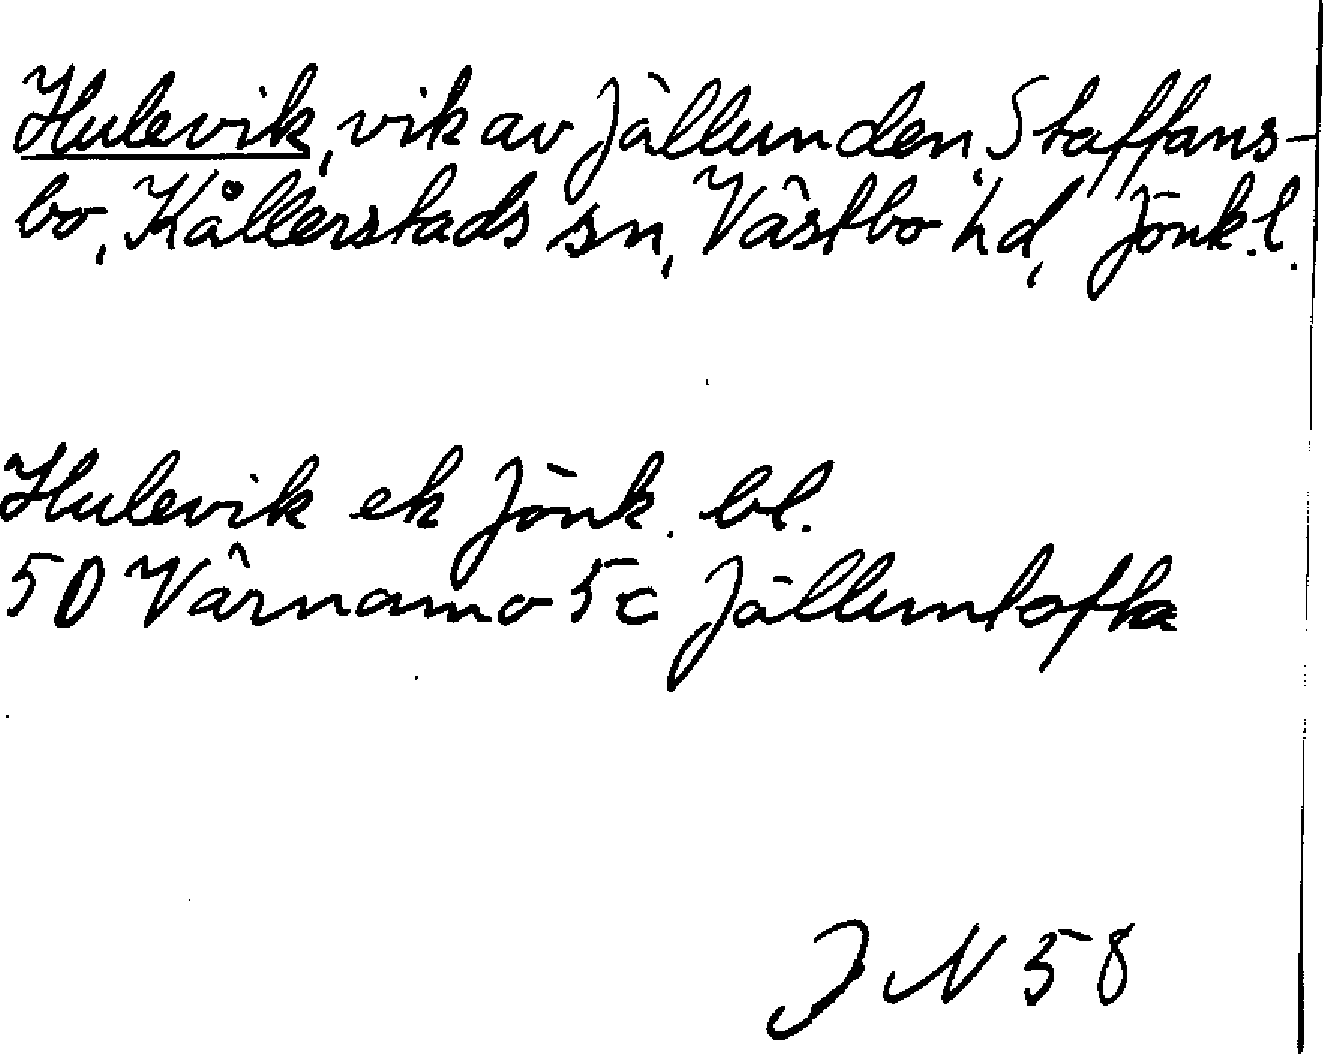 Hulevik, vik av Jällunden, Staffans-
bo, Kållerstads sn, Västbo hd, Jönk.l.
Hulevik ek Jönk. bl.
5D Värnamo 5c Jälluntofta
JN 58